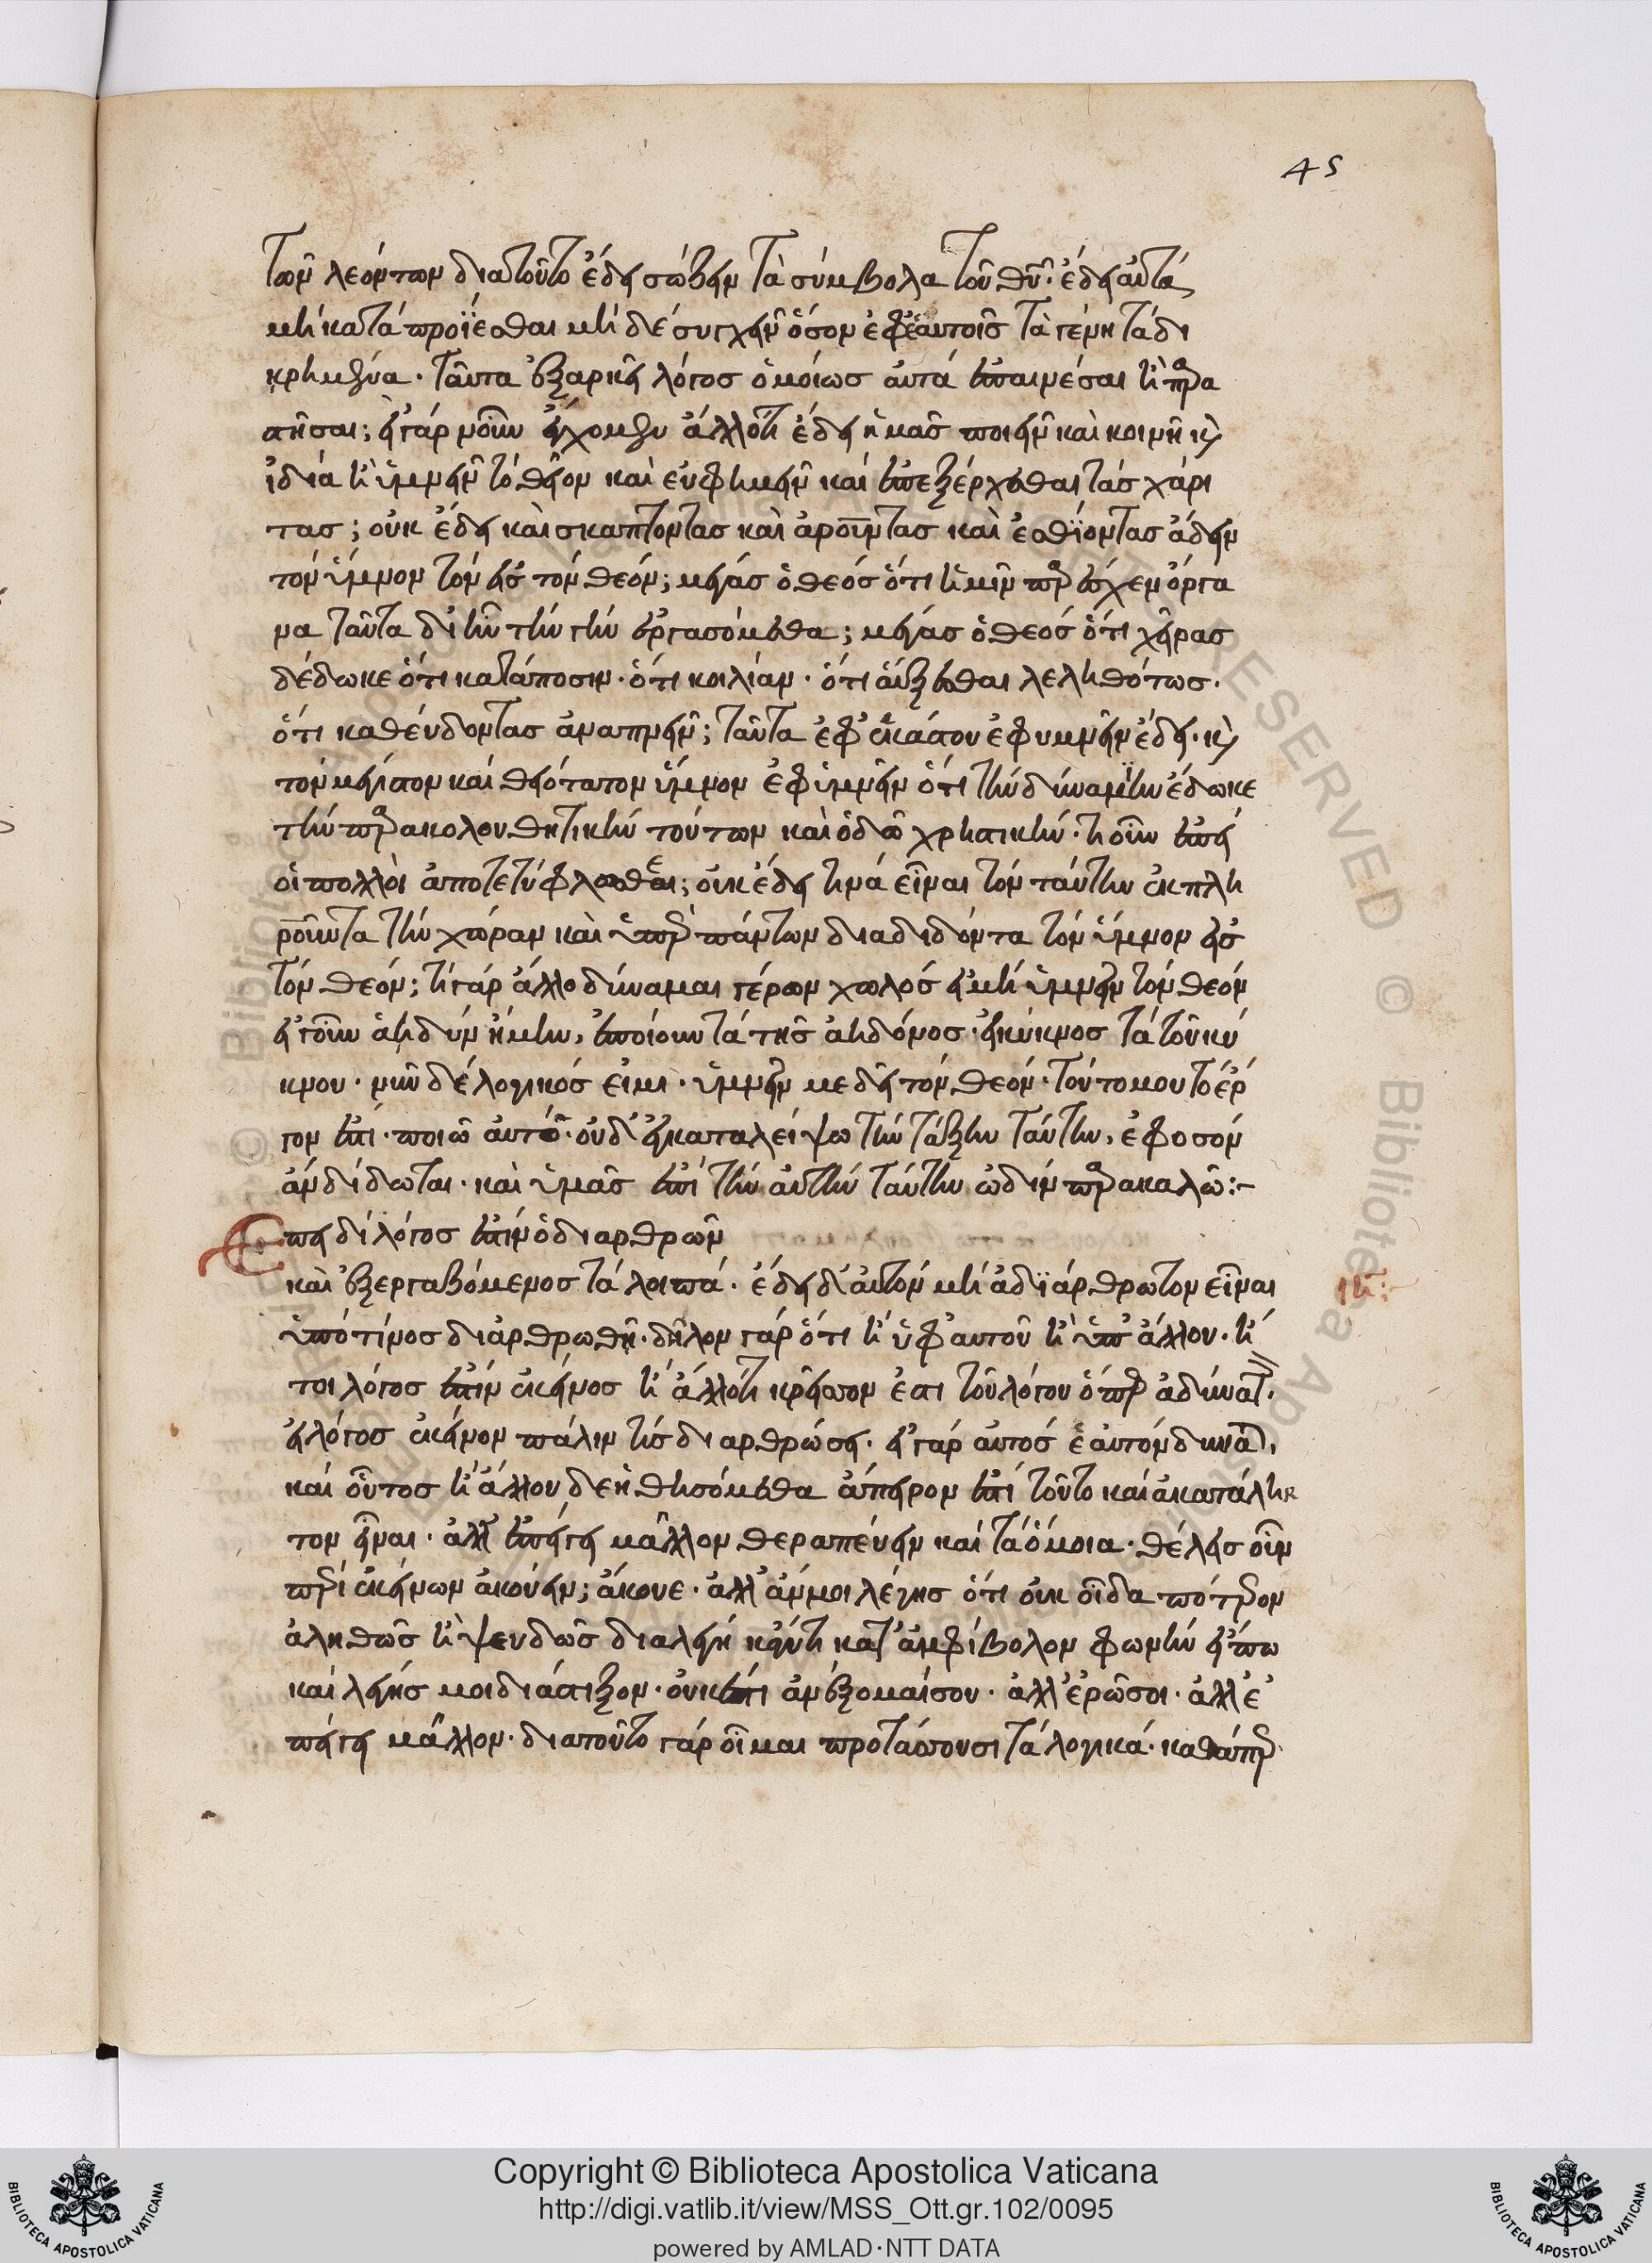 45
τῶν λεόντων διατοῦτο ἔδει σώζειν τὰ σύμβολα τοῦ θυ̅· ἔδει αὐτὰ
μὴ καταπροΐεσθαι μὴ δὲ συγχεῖν ὅσον ἐφ' ἑαυτοῖς τὰ γένη τὰ δι
κρημένα· ταῦτα ἐξαρκεῖ λόγος ὁμοίως αὐτὰ ἐπαινέσαι ἢ παρα
στῆσαι; εἰ γὰρ νοῦν εἴχομεν ἄλλό τι ἔδει ἡμᾶς ποιεῖν καὶ κοινῆ κ(αὶ)
ἰδία ἢ ὑμνεῖν τὸ θεῖον καὶ εὐφημεῖν καὶ ἐπεξέρχεσθαι τὰς χάρι
τας; οὐκ ἔδει καὶ σκάπτοντας καὶ ἀροῦντας καὶ ἐσθίοντας ἄδειν
τὸν ὕμνον τὸν εἰς τὸν θεόν; μέγας ὁ θεός ὅτι ἡμῖν παρέσχεν ὄργα
να ταῦτα δι' ὧν τὴν γῆν ἐργασόμεθα; μέγας ὁ θεός ὅτι χεῖρας
δέδωκε ὅτι κατάποσιν· ὅτι κοιλίαν· ὅτι αὔξεσθαι λεληθότως·
ὅτι καθεύδοντας ἀναπνεῖν; ταῦτα ἐφ' ἑκάστου ἐφυμνεῖν ἔδει· κ(αὶ)
τὸν μέγιστον καὶ θειότατον ὕμνον ἐφυμνεῖν ὅτι τὴν δύναμιν ἔδωκε
τὴν παρακολουθητικὴν τούτων καὶ ὁδῶ χρηστικήν· τί οὖν ἐπεὶ
οἱ πολλοὶ ἀποτετύφλωσθε; οὐκ ἔδει τινά εἶναι τὸν ταύτην ἐκπλη
ροῦντα τὴν χώραν καὶ ὑπὲρ πάντων διαδιδόντα τὸν ὕμνον εἰς
τὸν θεόν; τί γὰρ ἄλλο δύναμαι γέρων χωλός εἰ μὴ ὑμνεῖν τὸν θεόν
εἰ γοῦν ἀηδὼν ἤμην, ἐποίουν τὰ τῆς ἀηδόνος· εἰ κύκνος τὰ τοῦ κύ
κνου· νῦν δὲ λογικός εἰμι· ὑμνεῖν με δεῖ τὸν θεόν· τοῦτο μου τὸ ἔρ
γον ἐστί· ποιῶ αὐτό· οὐδ' ἐγκαταλείψω τὴν τάξιν ταύτην, ἐφοσόν
ἂν δίδωται· καὶ ὑμᾶς ἐπὶ τὴν αὐτὴν ταύτην ὠδὴν παρακαλῶ:-
Ἐπειδὴ λόγος ἐστὶν ὁ διαρθρῶν
καὶ ἐξεργαζόμενος τὰ λοιπά· ἔδει δ' αὐτὸν μὴ ἀδιάρθρωτον εἶναι
ιζ:
ὑπό τίνος διαρθρωθῆ· δῆλον γὰρ ὅτι ἢ ὑφ' αυτοῦ ἢ ὑπ' ἄλλου· ἤ
τοι λόγος ἐστὶν ἐκεῖνος ἢ ἄλλό τι κρεῖσσον ἔσται τοῦ λόγου ὅπερ ἀδύνατ(ον)·
εἰ λόγος ἐκεῖνον πάλιν τίς διαρθρώσει· εἰ γὰρ αὐτὸς ἑαυτὸν δύνατ(αι),
καὶ οὗτος ἢ ἄλλου δεηθησόμεθα ἄπειρον ἐστὶ τοῦτο καὶ ἀκατάλη
τον εἶναι· ἀλλ' ἐπείγει μᾶλλον θεραπεύειν καὶ τὰ ὅμοια· θέλεις οὖν
περὶ ἐκείνων ἀκούειν; ἄκουε· ἀλλ' ἄν μοι λέγης ὅτι οὐκ οἶδα πότερον
ἀληθῶς ἢ ψευδῶς διαλέγη κἄν τι κατ' ἀμφίβολον φωνὴν εἴπω
καὶ λέγης μοι διάστιξον· οὐκ ἔτι ἀνέξομαί σου· ἀλλ' ἐρῶ σοι· ἀλλ' ἐ
πείγει μᾶλλον· διατοῦτο γὰρ οἶμαι προτάσσουσι τὰ λογικά· καθάπερ
Copyright © Biblioteca Apostolica Vaticana
http://digi.vatlib.it/view/MSS_Ott.gr.102/0095
powered by AMLAD·NTT DATA